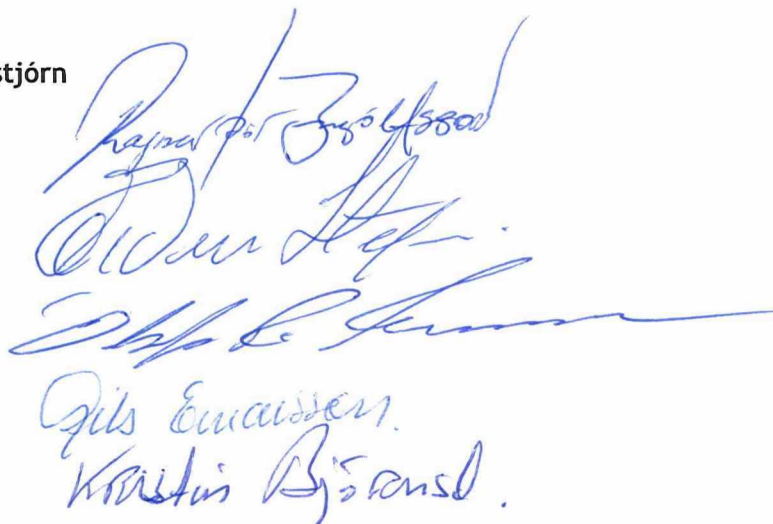 stjórn
Ragnar Þór Ingólfsson
Stef
Ólafur R.
Gils Einarsson.
Kristín Björnsd.